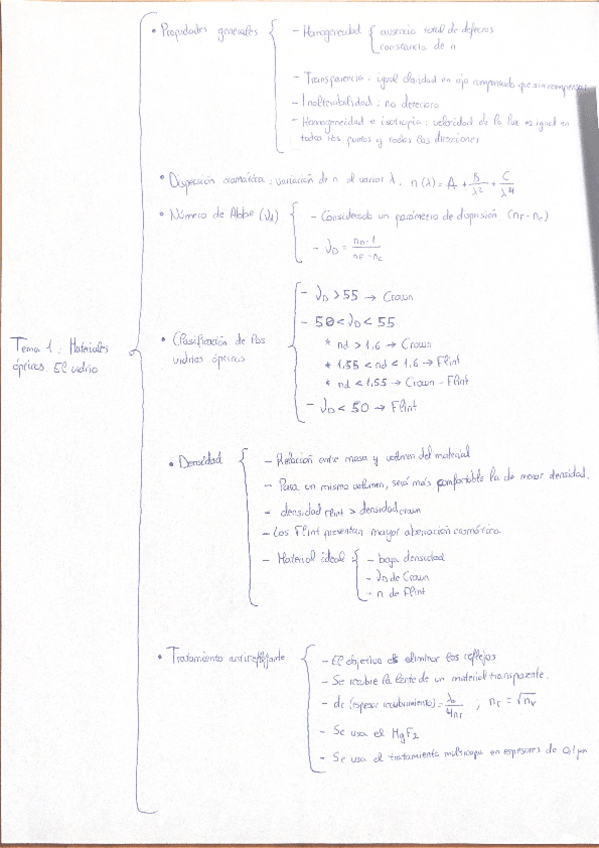 Tema 1: Materiales
ópticos. El vidrio
• Propiedades generales
- Homogeneidad { ausencia total de defectos
constancia de n
- Transparencia - igual claridad en ojo compensado que sin compensar
- Inalterabilidad: no deterioro
- Homogeneidad e isotropía: velocidad de la luz es igual en
todos los puntos y todas las direcciones
• Dispersión cromática: variación de n al variar λ. n(λ) = A + B/λ² + C/λ⁴
• Número de Abbe (νd)
- Considerado un parámetro de dispersión (nF - nC)
- νD = nD - 1 / nF - nC
• Clasificación de los
vidrios ópticos
- νD > 55 → Crown
- 50 < νD < 55
* nd > 1,6 → Crown
* 1,55 < nd < 1,6 → Flint
* nd < 1,55 → Crown - Flint
- νD < 50 → Flint
• Densidad
- Relación entre masa y volumen del material
- Para un mismo volumen, será más comfortable la de menor densidad.
- densidad Flint > densidad crown
- Los Flint presentan mayor aberración cromática
- Material ideal {
- baja densidad
- νD de Crown
- n de Flint
• Tratamiento antirreflejante
- El objetivo es eliminar los reflejos
- Se recubre la lente de un material transparente.
- dr (espesor recubrimiento) = λ0/4nr ; nr = √nv
- Se usa el MgF2
- Se usa el tratamiento multicapa en espesores de 0,1 μm